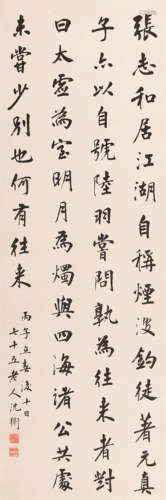 張志和居江湖自稱煙波釣徒著元真
子亦以自號陸羽嘗問孰為往來者對
曰太虛為室明月為燭與四海諸公共處
未嘗少別也何有往來
丙子立春後十日
七十五老人沈衛